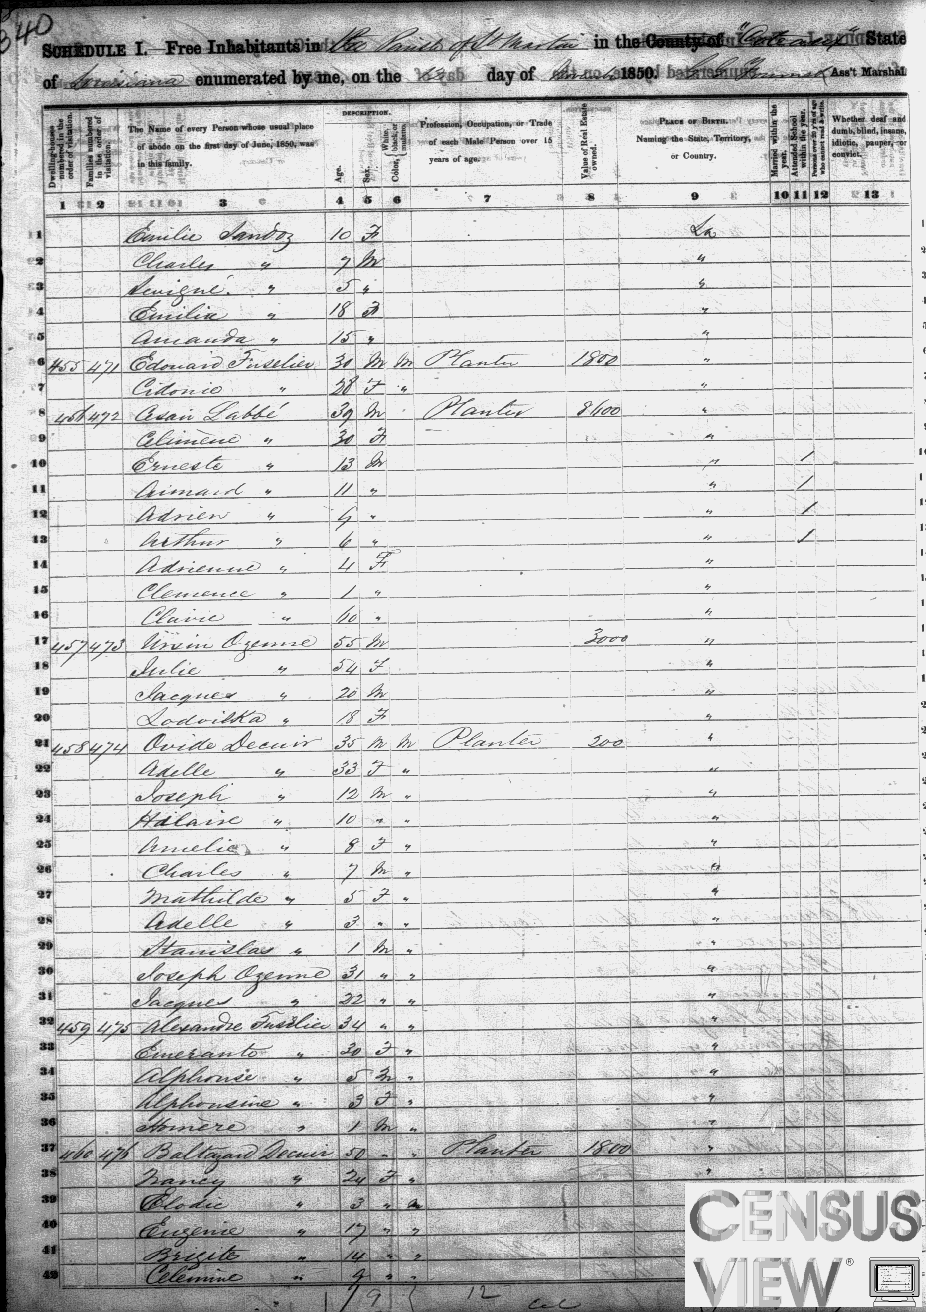 340
SCHEDULE I. Free Inhabitants in the Parish of St Martin in the County of State
of Louisiana enumerated by me, on the day of 1850. Ass't Marshal.
Dwelling-houses numbered in the order of visitation.
Families numbered in the order of visitation.
The Name of every Person whose usual place of abode on the first day of June, 1850, was in this family.
DESCRIPTION.
Age.
Sex.
Color, White, black, or mulatto.
Profession, Occupation, or Trade of each Male Person over 15 years of age.
Value of Real Estate owned.
PLACE OF BIRTH. Naming the State, Territory, or Country.
Married within the year.
Attended School within the year.
Persons over 20 y'rs of age who cannot read & write.
Whether deaf and dumb, blind, insane, idiotic, pauper, or convict.
1 2 3 4 5 6 7 8 9 10 11 12 13
1 Emilie Sandoz 10 F La
2 Charles " 7 M "
3 Sevigné " 5 " "
4 Emilia " 18 F "
5 Amanda " 15 " "
6 455 471 Edouard Fuselier 30 M M Planter 1800 "
7 Cidonie " 28 F " "
8 456 472 Cesair Labbé 39 M Planter 8400 "
9 Celimène " 30 F "
10 Erneste " 13 M " 1
11 Aimard " 11 " " 1
12 Adrien " 9 " " 1
13 Arthur " 6 " " 1
14 Adrienne " 4 F "
15 Clemence " 1 " "
16 Clavie " 40 " "
17 457 473 Ursin Ozenne 55 M 3000 "
18 Julie " 54 F "
19 Jacques " 20 M "
20 Lodoiska " 18 F "
21 458 474 Ovide Decuir 35 M M Planter 200 "
22 Adelle " 33 F " "
23 Joseph " 12 M " "
24 Hilaire " 10 " " "
25 Amelie " 8 F " "
26 Charles " 7 M " "
27 Mathilde " 5 F " "
28 Adelle " 3 " " "
29 Stanislas " 1 M " "
30 Joseph Ozenne 31 " " "
31 Jacques " 22 " " "
32 459 475 Alexandre Fuselier 34 " " "
33 Emerante " 30 F " "
34 Alphonse " 5 M " "
35 Alphonsine " 3 F " "
36 Homère " 1 M " "
37 460 476 Baltazard Decuir 50 " " Planter 1800 "
38 Nancy " 24 F " "
39 Elodie " 3 " "
40 Eugenie " 17 " "
41 Brigite " 14 " "
42 Celemine " 9 " "
19 12
CENSUS
VIEW®